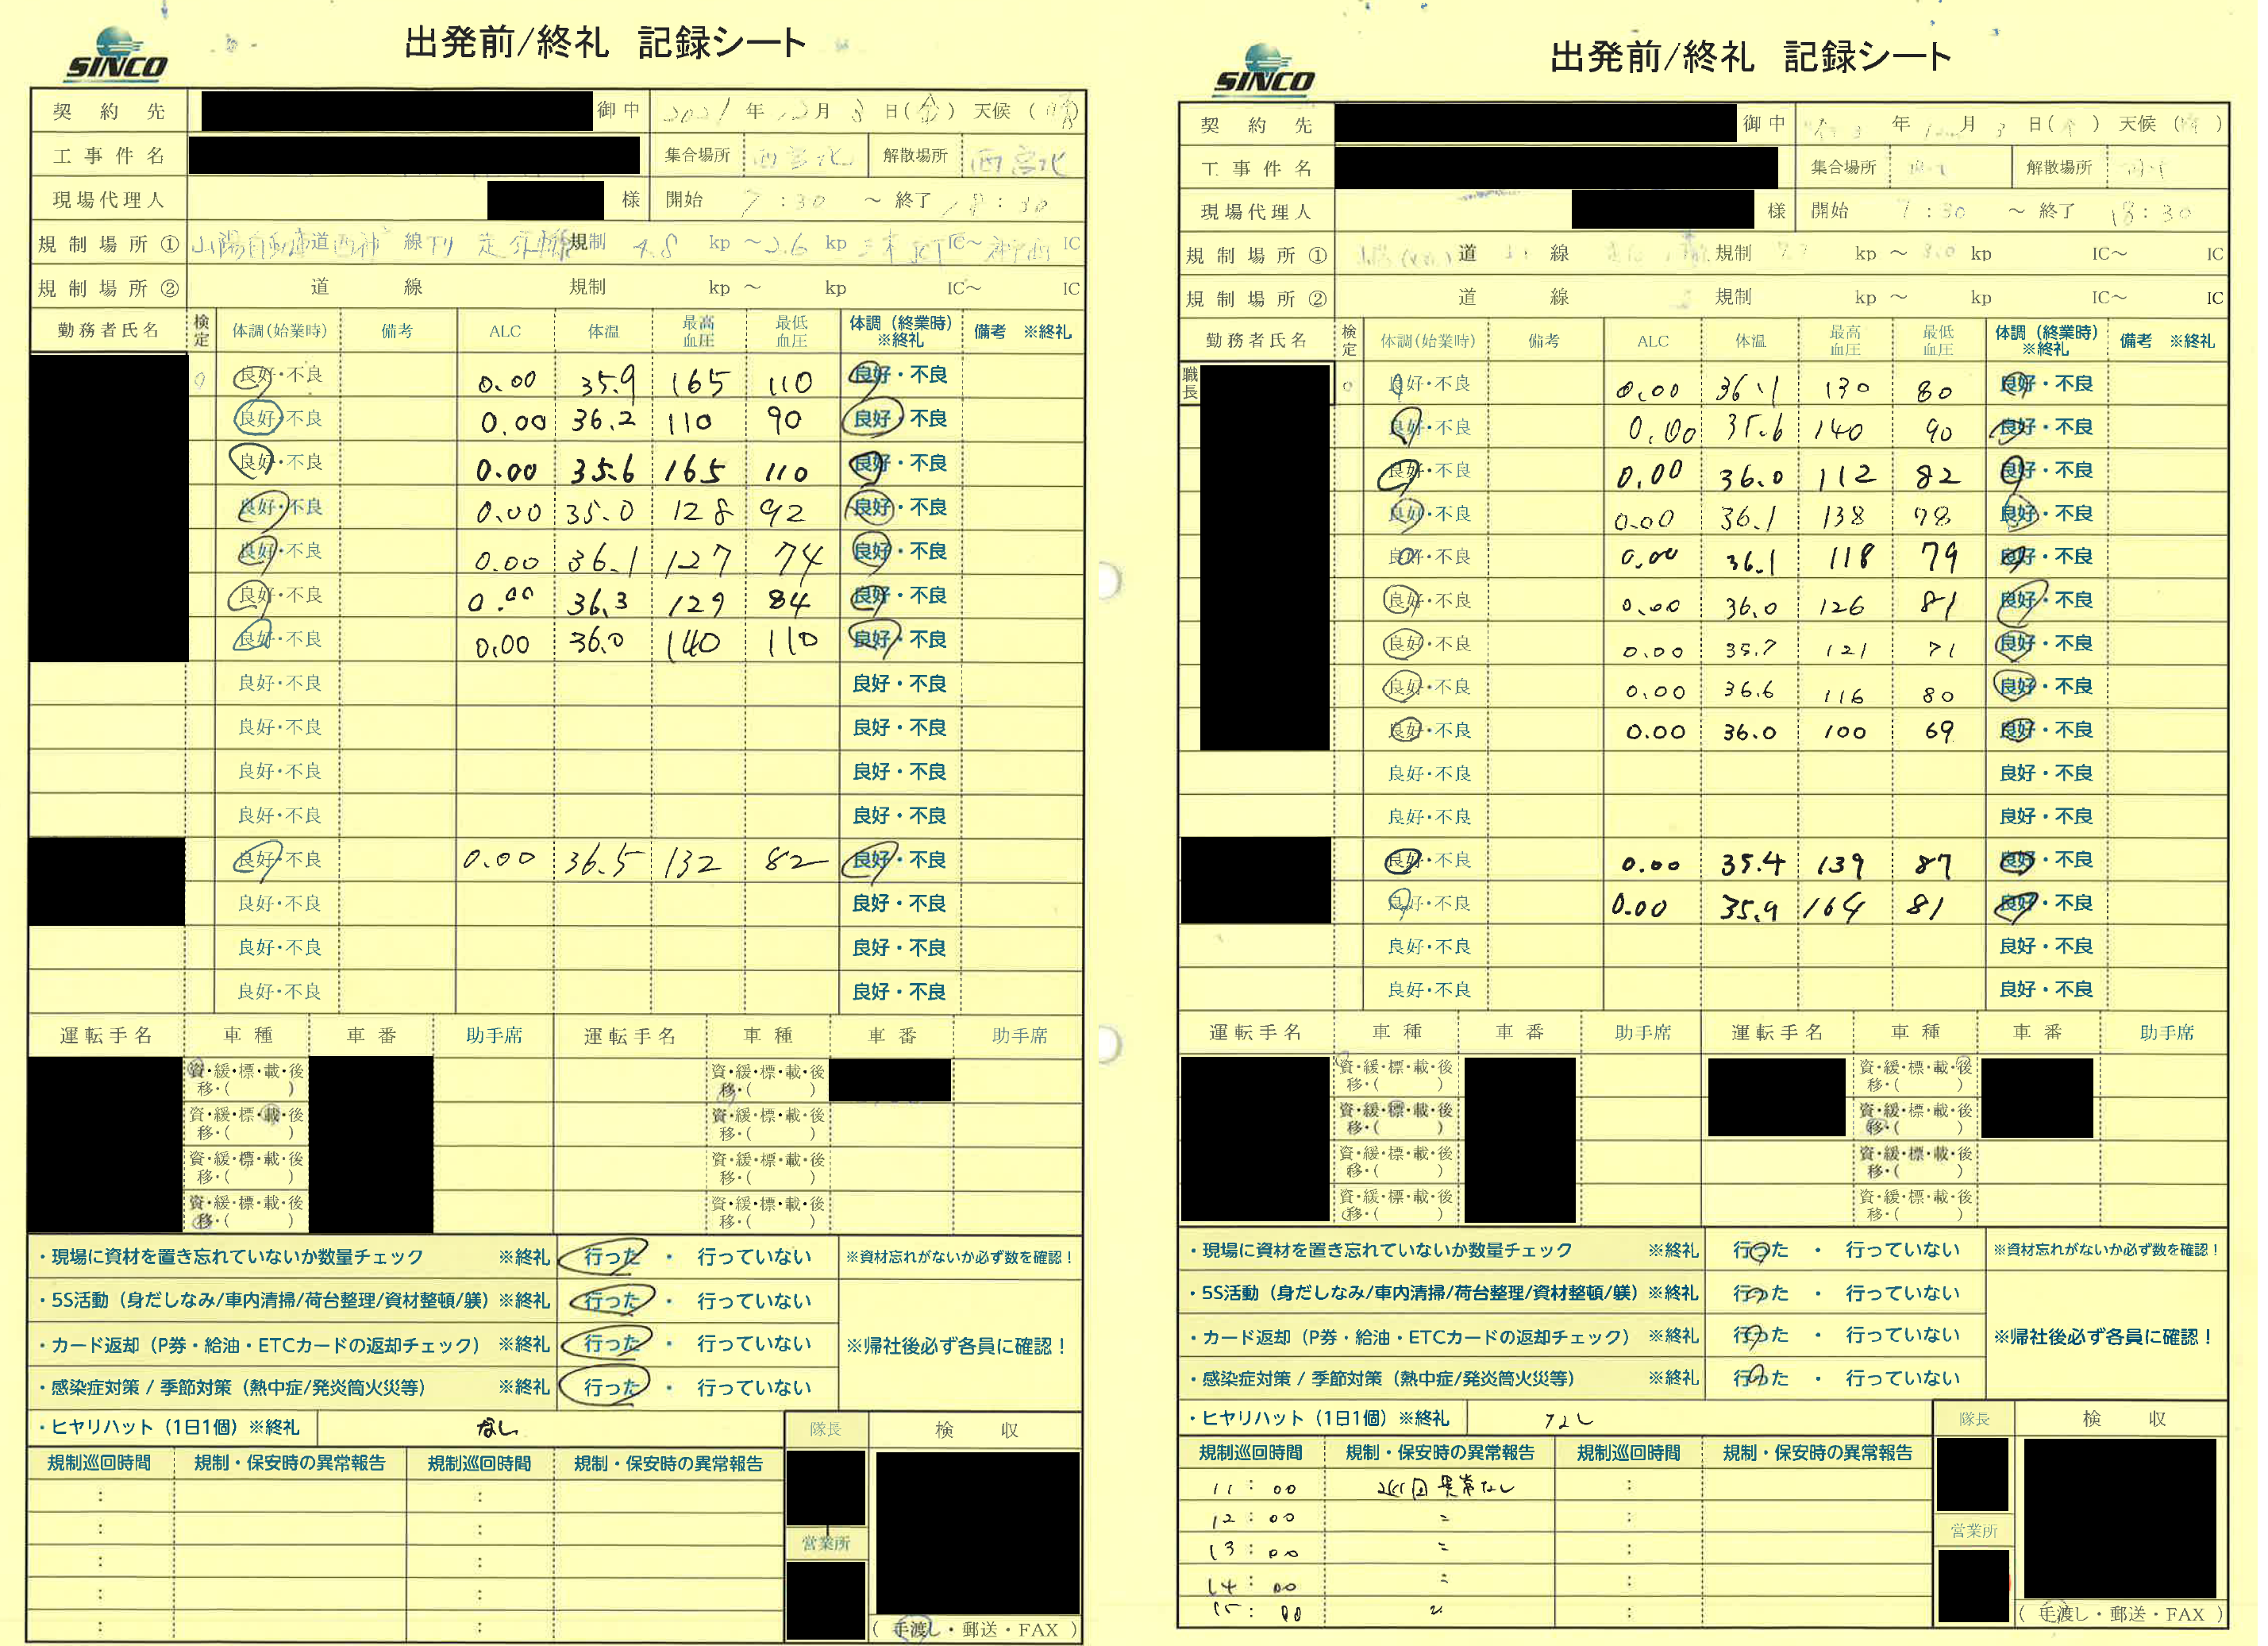 SINCO
出発前/終礼 記録シート
契約先 御中 2021年12月3日(金) 天候(晴)
工事件名 集合場所 西宮北 解散場所 西宮北
現場代理人 様 開始 7:30 ～ 終了 18:30
規制場所① 山陽自動車道 西神 線下り 走行 規制 4.8 kp ～ 2.6 kp IC～ IC
規制場所② 道 線 規制 kp ～ kp IC～ IC
勤務者氏名 検定 体調(始業時) 備考 ALC 体温 最高血圧 最低血圧 体調(終業時)※終礼 備考 ※終礼
良好・不良 0.00 35.9 165 110 良好・不良
良好・不良 0.00 36.2 110 90 良好・不良
良好・不良 0.00 35.6 165 110 良好・不良
良好・不良 0.00 35.0 128 92 良好・不良
良好・不良 0.00 36.1 127 74 良好・不良
良好・不良 0.00 36.3 129 84 良好・不良
良好・不良 0.00 36.0 140 110 良好・不良
良好・不良 良好・不良
良好・不良 良好・不良
良好・不良 良好・不良
良好・不良 良好・不良
良好・不良 0.00 36.5 132 82 良好・不良
良好・不良 良好・不良
良好・不良 良好・不良
良好・不良 良好・不良
運転手名 車種 車番 助手席 運転手名 車種 車番 助手席
資・緩・標・載・後 資・緩・標・載・後
移・( ) 移・( )
資・緩・標・載・後 資・緩・標・載・後
移・( ) 移・( )
資・緩・標・載・後 資・緩・標・載・後
移・( ) 移・( )
資・緩・標・載・後 資・緩・標・載・後
移・( ) 移・( )
・現場に資材を置き忘れていないか数量チェック ※終礼 行った ・ 行っていない ※資材忘れがないか必ず数を確認！
・5S活動（身だしなみ/車内清掃/荷台整理/資材整頓/躾）※終礼 行った ・ 行っていない
・カード返却（P券・給油・ETCカードの返却チェック） ※終礼 行った ・ 行っていない ※帰社後必ず各員に確認！
・感染症対策 / 季節対策（熱中症/発炎筒火災等） ※終礼 行った ・ 行っていない
・ヒヤリハット（1日1個）※終礼 なし 隊長 検収
規制巡回時間 規制・保安時の異常報告 規制巡回時間 規制・保安時の異常報告
: :
: :
営業所
: :
: :
: :
( 手渡し・郵送・FAX )
SINCO
出発前/終礼 記録シート
契約先 御中 年 月 3日( ) 天候( )
工事件名 集合場所 解散場所
現場代理人 様 開始 7:30 ～ 終了 18:30
規制場所① 道 線 規制 kp ～ kp IC～ IC
規制場所② 道 線 規制 kp ～ kp IC～ IC
勤務者氏名 検定 体調(始業時) 備考 ALC 体温 最高血圧 最低血圧 体調(終業時)※終礼 備考 ※終礼
職長 良好・不良 0.00 36.1 130 80 良好・不良
良好・不良 0.00 35.6 140 90 良好・不良
良好・不良 0.00 36.0 112 82 良好・不良
良好・不良 0.00 36.1 138 78 良好・不良
良好・不良 0.00 36.1 118 79 良好・不良
良好・不良 0.00 36.0 126 81 良好・不良
良好・不良 0.00 35.7 121 71 良好・不良
良好・不良 0.00 36.6 116 80 良好・不良
良好・不良 0.00 36.0 100 69 良好・不良
良好・不良 良好・不良
良好・不良 良好・不良
良好・不良 0.00 35.4 139 87 良好・不良
良好・不良 0.00 35.9 164 81 良好・不良
良好・不良 良好・不良
良好・不良 良好・不良
運転手名 車種 車番 助手席 運転手名 車種 車番 助手席
資・緩・標・載・後 資・緩・標・載・後
移・( ) 移・( )
資・緩・標・載・後 資・緩・標・載・後
移・( ) 移・( )
資・緩・標・載・後 資・緩・標・載・後
移・( ) 移・( )
資・緩・標・載・後 資・緩・標・載・後
移・( ) 移・( )
・現場に資材を置き忘れていないか数量チェック ※終礼 行った ・ 行っていない ※資材忘れがないか必ず数を確認！
・5S活動（身だしなみ/車内清掃/荷台整理/資材整頓/躾）※終礼 行った ・ 行っていない
・カード返却（P券・給油・ETCカードの返却チェック） ※終礼 行った ・ 行っていない ※帰社後必ず各員に確認！
・感染症対策 / 季節対策（熱中症/発炎筒火災等） ※終礼 行った ・ 行っていない
・ヒヤリハット（1日1個）※終礼 なし 隊長 検収
規制巡回時間 規制・保安時の異常報告 規制巡回時間 規制・保安時の異常報告
11:00 巡回異常なし :
12:00 〃 :
営業所
13:00 〃 :
14:00 〃 :
15:00 〃 :
( 手渡し・郵送・FAX )